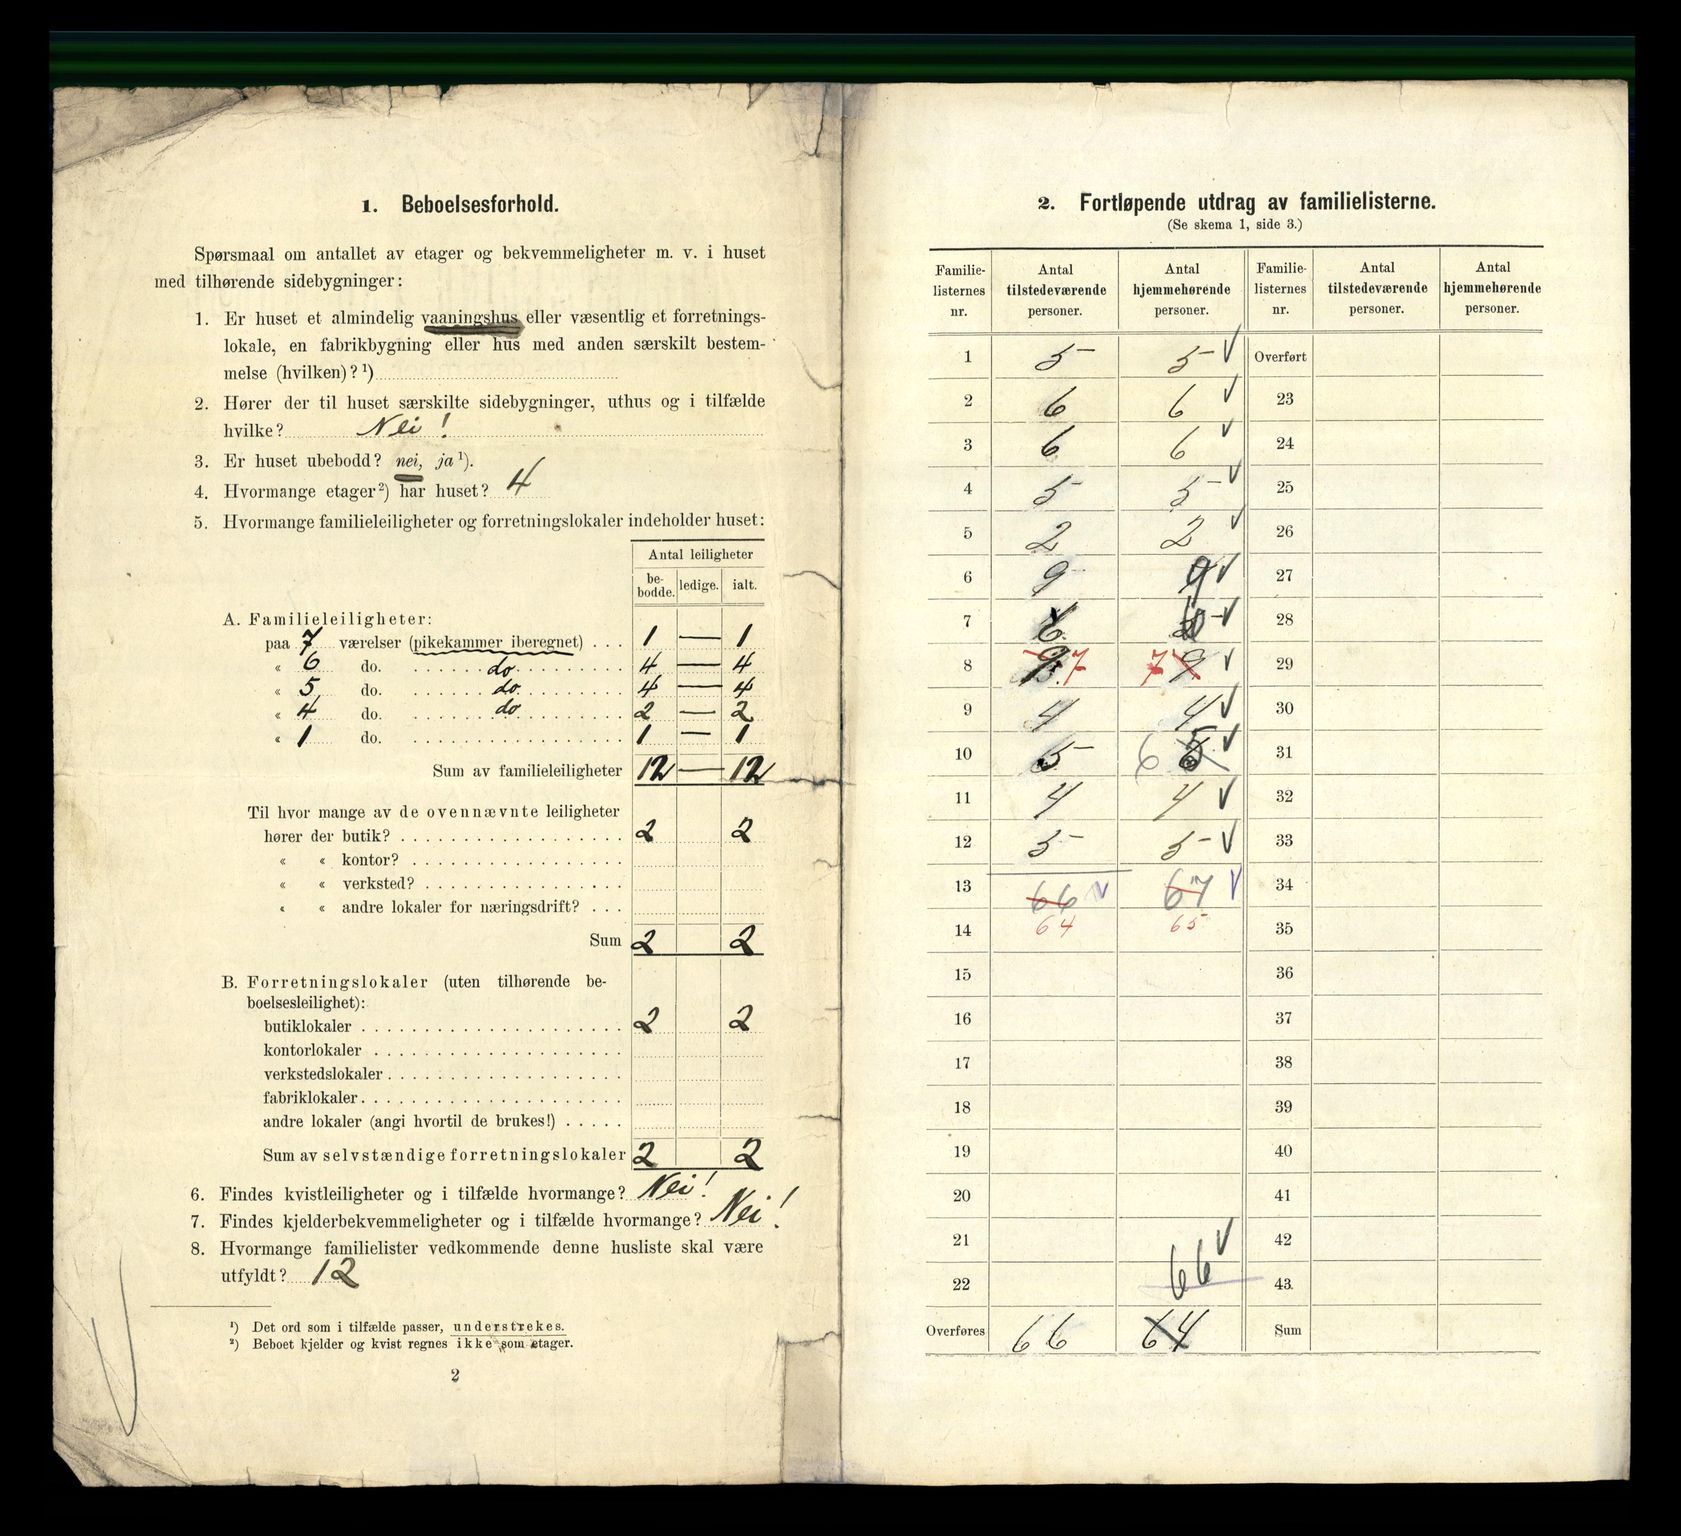 1. Beboelsesforhold.
Spørsmaal om antallet av etager og bekvemmeligheter m. v. i huset
med tilhørende sidebygninger:
1. Er huset et almindelig vaaningshus eller væsentlig et forretnings-
lokale, en fabrikbygning eller hus med anden særskilt bestem-
melse (hvilken)? ¹)
2. Hører der til huset særskilte sidebygninger, uthus og i tilfælde
hvilke? Nei!
3. Er huset ubebodd? nei, ja ¹).
4. Hvormange etager ²) har huset? 4
5. Hvormange familieleiligheter og forretningslokaler indeholder huset:
Antal leiligheter
be-bodde. ledige. ialt.
A. Familieleiligheter:
paa 7 værelser (pikekammer iberegnet) . . . 1 — 1
« 6 do. do 4 — 4
« 5 do. do. 4 — 4
« 4 do. do. 2 — 2
« 1 do. 1 — 1
Sum av familieleiligheter 12 — 12
Til hvor mange av de ovennævnte leiligheter
hører der butik? 2 2
« « kontor?
« « verksted?
« « andre lokaler for næringsdrift? . . .
Sum 2 2
B. Forretningslokaler (uten tilhørende be-
boelsesleilighet):
butiklokaler 2 2
kontorlokaler
verkstedslokaler
fabriklokaler
andre lokaler (angi hvortil de brukes!) . . . . .
Sum av selvstændige forretningslokaler 2 2
6. Findes kvistleiligheter og i tilfælde hvormange? Nei!
7. Findes kjelderbekvemmeligheter og i tilfælde hvormange? Nei!
8. Hvormange familielister vedkommende denne husliste skal være
utfyldt? 12
¹) Det ord som i tilfælde passer, understrekes.
²) Beboet kjelder og kvist regnes ikke som etager.
2
2. Fortløpende utdrag av familielisterne.
(Se skema 1, side 3.)
Familie-listernes nr. Antal tilstedeværende personer. Antal hjemmehørende personer. Familie-listernes nr. Antal tilstedeværende personer. Antal hjemmehørende personer.
1 5 5 Overført
2 6 6 23
3 6 6 24
4 5 5 25
5 2 2 26
6 9 9 27
7 28
8 7 7 9 29
9 4 4 30
10 5 6 31
11 4 4 32
12 5 5 33
13 66 67 34
14 64 65 35
15 36
16 37
17 38
18 39
19 40
20 41
21 42
22 66 43
Overføres 66 64 Sum